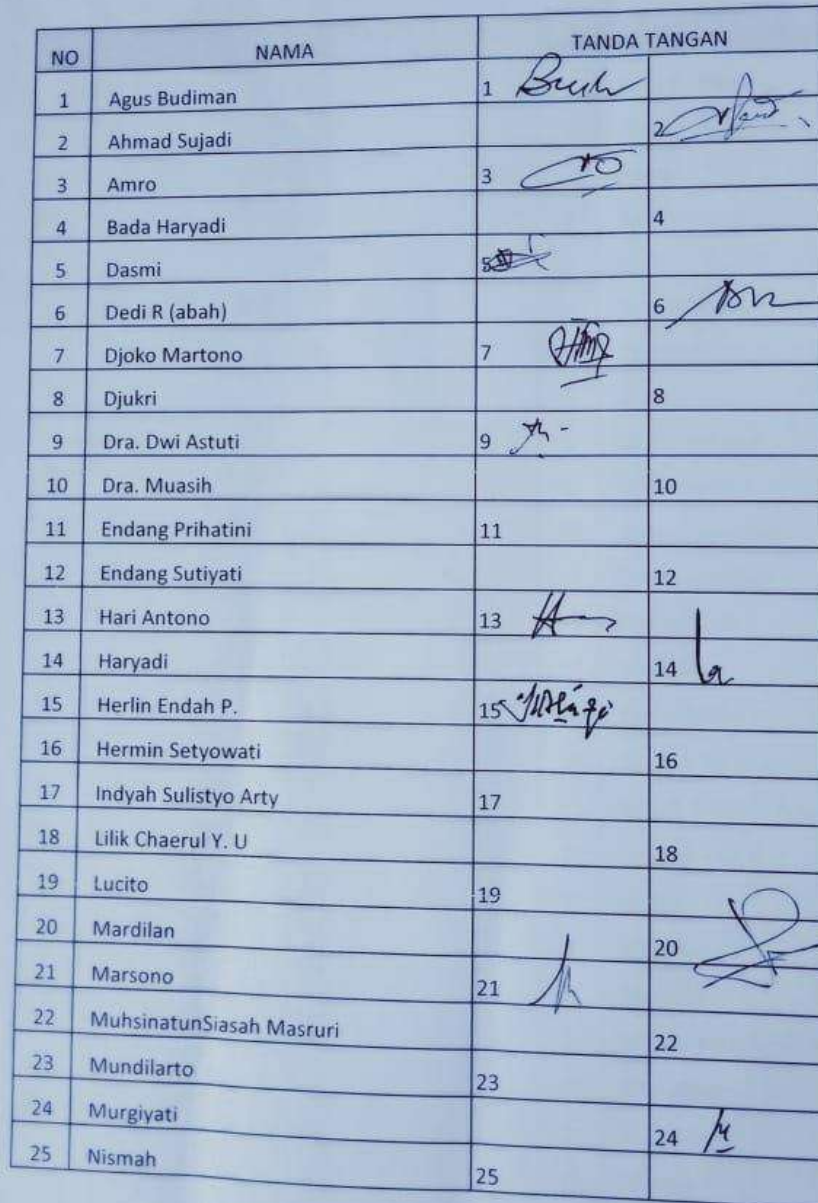 NO NAMA TANDA TANGAN
1 Agus Budiman 1
2 Ahmad Sujadi 2
3 Amro 3
4 Bada Haryadi 4
5 Dasmi 5
6 Dedi R (abah) 6
7 Djoko Martono 7
8 Djukri 8
9 Dra. Dwi Astuti 9
10 Dra. Muasih 10
11 Endang Prihatini 11
12 Endang Sutiyati 12
13 Hari Antono 13
14 Haryadi 14
15 Herlin Endah P. 15
16 Hermin Setyowati 16
17 Indyah Sulistyo Arty 17
18 Lilik Chaerul Y. U 18
19 Lucito 19
20 Mardilan 20
21 Marsono 21
22 MuhsinatunSiasah Masruri 22
23 Mundilarto 23
24 Murgiyati 24
25 Nismah 25